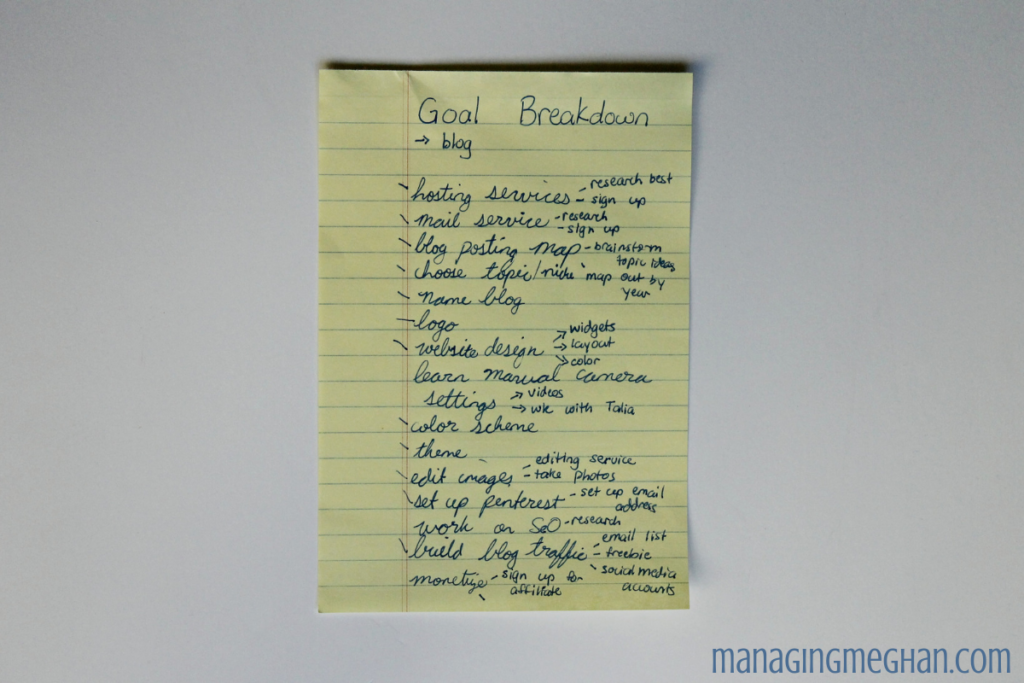 Goal Breakdown
→ blog
hosting services - research best
- sign up
mail service - research
- sign up
blog posting map - brainstorm
topic ideas
choose topic/niche map out by
year
name blog
logo
website design → widgets
→ layout
→ color
learn manual camera
settings → videos
→ wk with Talia
color scheme
theme
edit images - editing service
- take photos
set up pinterest - set up email
address
work on SEO - research
build blog traffic - email list
- freebie
- social media
accounts
monetize - sign up for
affiliate
managingmeghan.com